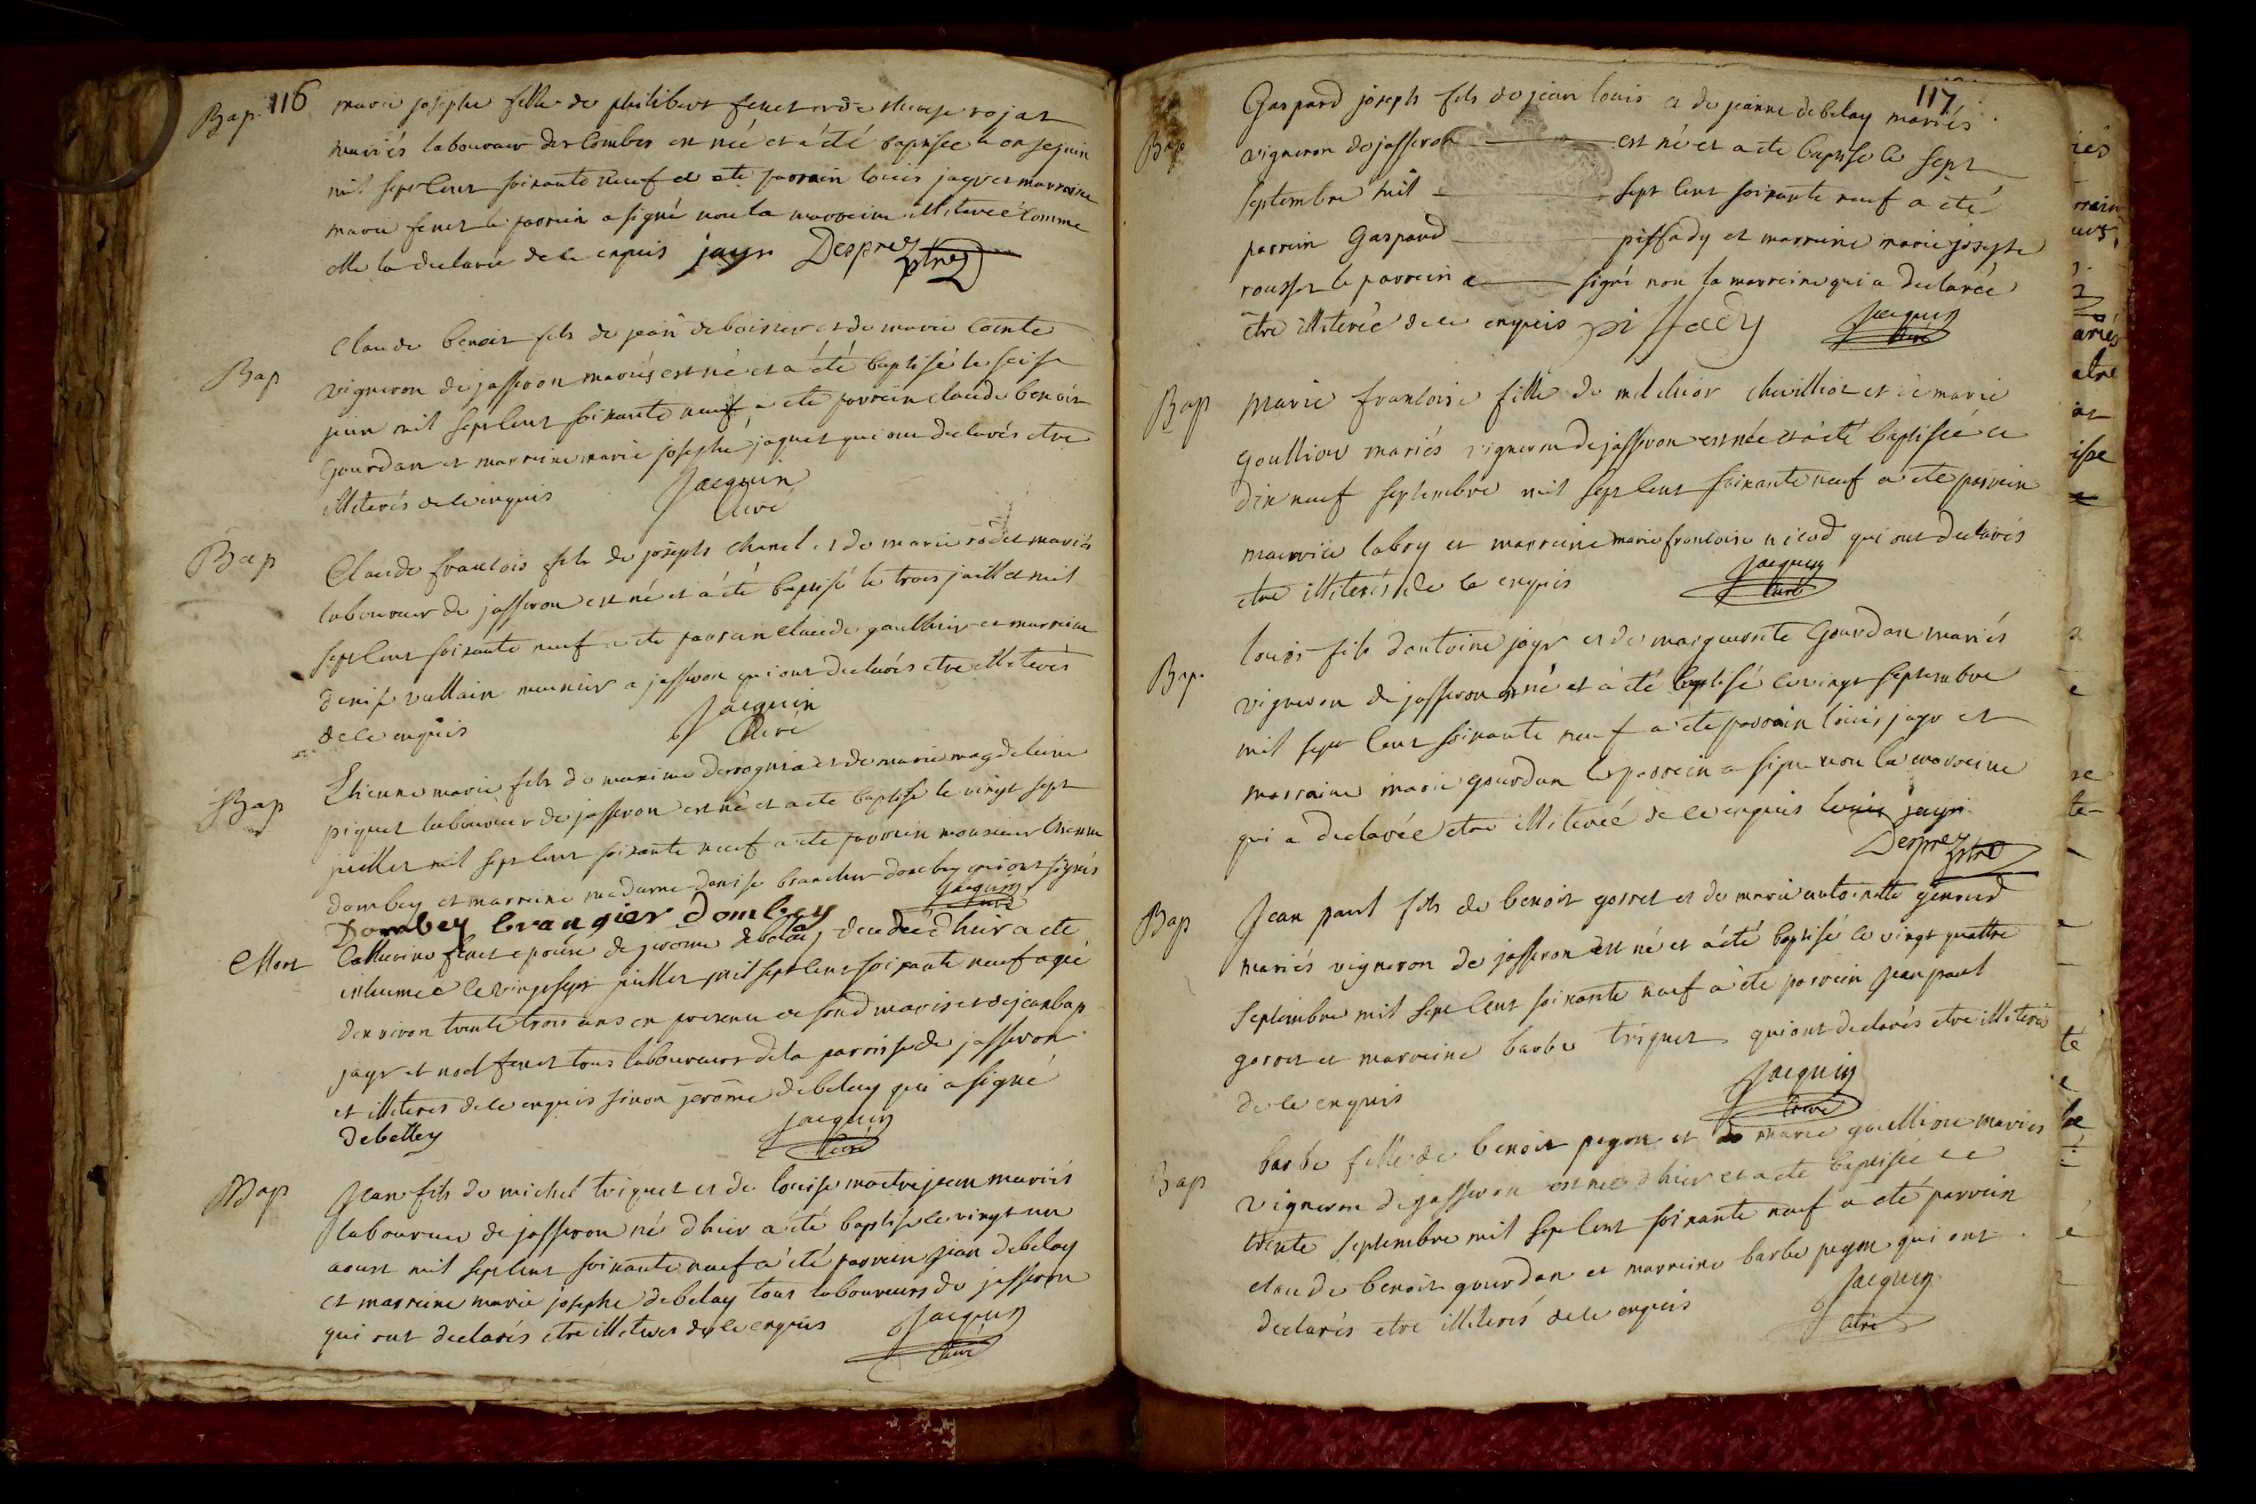 116
Bap. marie josephe fille de philibert fenet et de rojat
mariés laboureur des Combes est né et a été baptisee le onse juin
mil sept Cent soixante neuf a ete parrain louis jayr et marraine
marie fenet le parrain a signé non la marraine illiterée Comme
elle la declaré de ce enquis jayr Desprez ptre
Bap
Claude benoit fils de jean deboissieu et de marie Cointe
vigneron de jasseron mariés est né et a été baptisé le seise
juin mil sept Cent soixante neuf a ete parrein claude benoit
Gourdan et marreine marie josephe jaquet qui ont declarés etre
illiterés de ce enquis Jacquin
Curé
Bap
Claude francois fils de joseph Chanel et de marie rodet mariés
laboureur de jasseron est né et a été baptisé le trois juillet mil
sept Cent soixante neuf a ete parrein Claude gaulthier et marreine
denise vullain meunier a jasseron qui ont declarés etre illiterés
de ce enquis Jacquin
Curé
Bap
Etienne marie fils de maxime et de marie magdeleine
piquet laboureur de jasseron est né et a ete baptisé le vingt sept
juillet mil sept Cent soixante neuf a ete parrein monsieur Etienne
dombey et marreine madame denise brancher dombey qui ont signés
Jacquin
Curé
Dombey brangier Dombey
Mort Catherine fenet epouse de jerome debelay decedée d'hier a ete
inhumée le vingt sept juillet mil sept Cent soixante neuf agée
denviron trente trois ans en presence de sond maris et de jean bap
jayr et noel fenet tous laboureurs de la parroisse de jasseron
et illiteres de ce enquis sinon jerome debelay qui a signé
debelley Jacquin
Curé
Bap
Jean fils de michel triquet et de louise maitrejean mariés
laboureur de jasseron né d'hier a été baptisé le vingt un
aoust mil sept Cent soixante neuf a été parrein jean debelay
et marreine marie josephe debelay tous laboureurs de jasseron
qui ont declarés etre illiteres de ce enquis Jacquin
Curé
117
Bap
Gaspard joseph fils de jean louis et de jeanne debelay mariés
vigneron de jasseron est né et a ete baptisé le sept
septembre mil sept Cent soixante neuf a été
parrein Gaspard piffady et marreine marie josephe
rousset le parrein a signé non la marreine qui a declarée
etre illiterée de ce enquis piffady Jacquin
Curé
Bap marie francoise fille de melchior chevilliot et de marie
goulliou mariés vigneron de jasseron est née et a été baptisée ce
dix neuf septembre mil sept Cent soixante neuf a ete parrein
maurice labry et marreine marie francoise nicod qui ont declarés
etre illiterés de ce enquis Jacquin
Curé
Bap.
louis fils dantoine jayr et de marguerite Gourdan mariés
vigneron de jasseron est né et a été baptisé le vingt septembre
mil sept Cent soixante neuf a ete parrain louis jayr et
marraine marie gourdan le parrein a signé non la marreine
qui a declarée etre illiterée de ce enquis louis jayr
Desprez ptre
Bap
Jean paul fils de benoit gorret et de marie antoinette génoud
mariés vigneron de jasseron est né et a été baptisé le vingt quattre
septembre mil sept Cent soixante neuf a ete parrein jean paul
gorret et marreine barbe triquet qui ont declarés etre illiterés
de ce enquis Jacquin
Curé
Bap
barbe fille de benoit pegon et de marie goullion mariés
vigneron de jasseron est née d'hier et a ete baptisée ce
trente septembre mil sept Cent soixante neuf a été parrein
claude benoit gourdan et marreine barbe pegon qui ont
declarés etre illiterés de ce enquis Jacquin
Curé